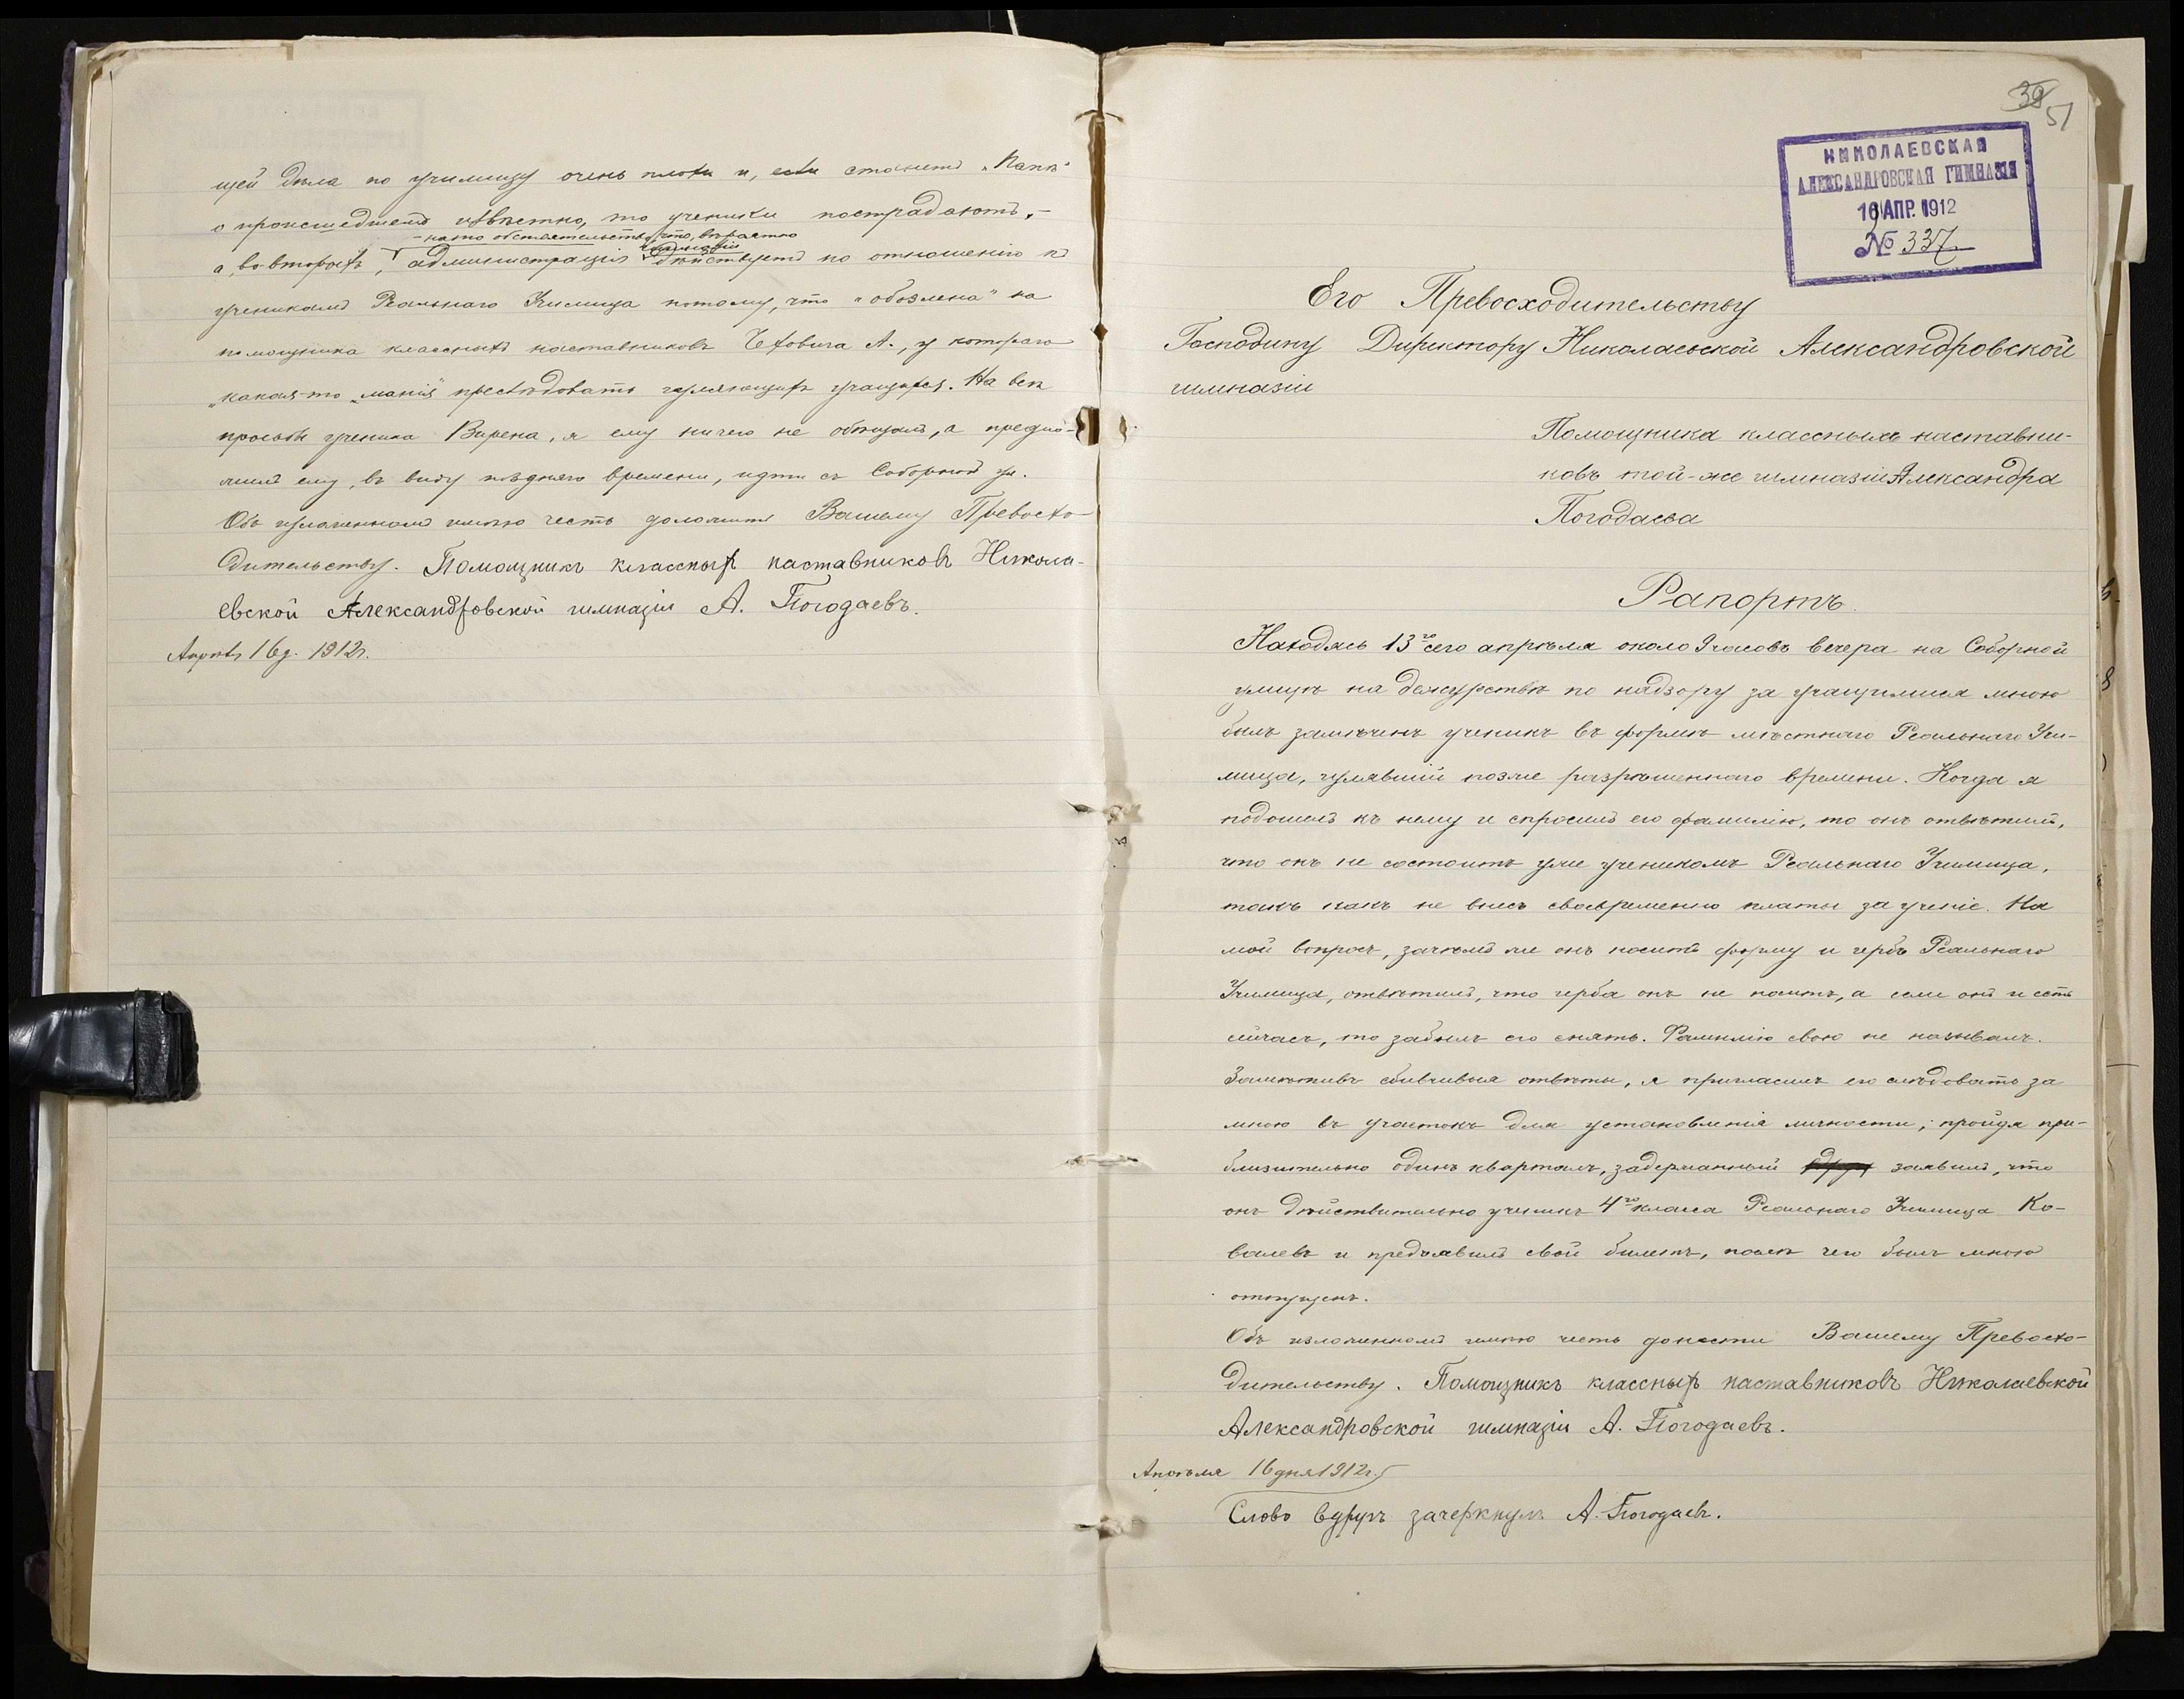 щей дѣла по училищу очень плохи и, если станетъ „Папѣ“
о происшедшемъ извѣстно, то ученики пострадаютъ, –
– на то обстоятельство, что, вѣроятно
а, во-вторыхъ, администрація гимназіи дѣйствуетъ по отношенію къ
ученикамъ Реальнаго Училища потому, что „обозлена“ на
помощника классныхъ наставниковъ Чеховича А., у котораго
„какая-то „манія“ преслѣдовать гуляющихъ учащихся. На всѣ
просьбы ученика Вирена, я ему ничего не обѣщалъ, а предло-
жилъ ему, въ виду поздняго времени, идти съ Соборной ул.
Объ изложенномъ имѣю честь доложить Вашему Превосхо-
дительству. Помощникъ классныхъ наставниковъ Никола-
евской Александровской гимназіи А. Погодаевъ.
Апрѣля 16 д. 1912 г.
39 51
НИКОЛАЕВСКАЯ
АЛЕКСАНДРОВСКАЯ ГИМНАЗІЯ
16 АПР. 1912
№ 337
Его Превосходительству
Господину Директору Николаевской Александровской
гимназіи
Помощника классныхъ наставни-
ковъ той-же гимназіи Александра
Погодаева
Рапортъ.
Находясь 13го сего апрѣля около 9 часовъ вечера на Соборной
улицѣ на дежурствѣ по надзору за учащимися мною
былъ замѣченъ ученикъ въ формѣ мѣстнаго Реальнаго Учи-
лища, гулявшій позже разрѣшеннаго времени. Когда я
подошелъ къ нему и спросилъ его фамилію, то онъ отвѣтилъ,
что онъ не состоитъ уже ученикомъ Реальнаго Училища,
такъ какъ не внесъ своевременно платы за ученіе. На
мой вопросъ, зачѣмъ же онъ носитъ форму и гербъ Реальнаго
Училища, отвѣтилъ, что герба онъ не носитъ, а если онъ и есть
сейчасъ, то забылъ его снять. Фамилію свою не называлъ.
Замѣтивъ сбивчивые отвѣты, я пригласилъ его слѣдовать за
мною въ участокъ для установленія личности; пройдя при-
близительно одинъ кварталъ, задержанный вдругъ заявилъ, что
онъ дѣйствительно ученикъ 4го класса Реальнаго Училища Ко-
валевъ и предъявилъ свой билетъ, послѣ чего былъ мною
отпущенъ.
Объ изложенномъ имѣю честь донести Вашему Превосхо-
дительству. Помощникъ классныхъ наставниковъ Николаевской
Александровской гимназіи А. Погодаевъ.
Апрѣля 16 дня 1912 г.
Слово вдругъ зачеркнулъ А. Погодаевъ.